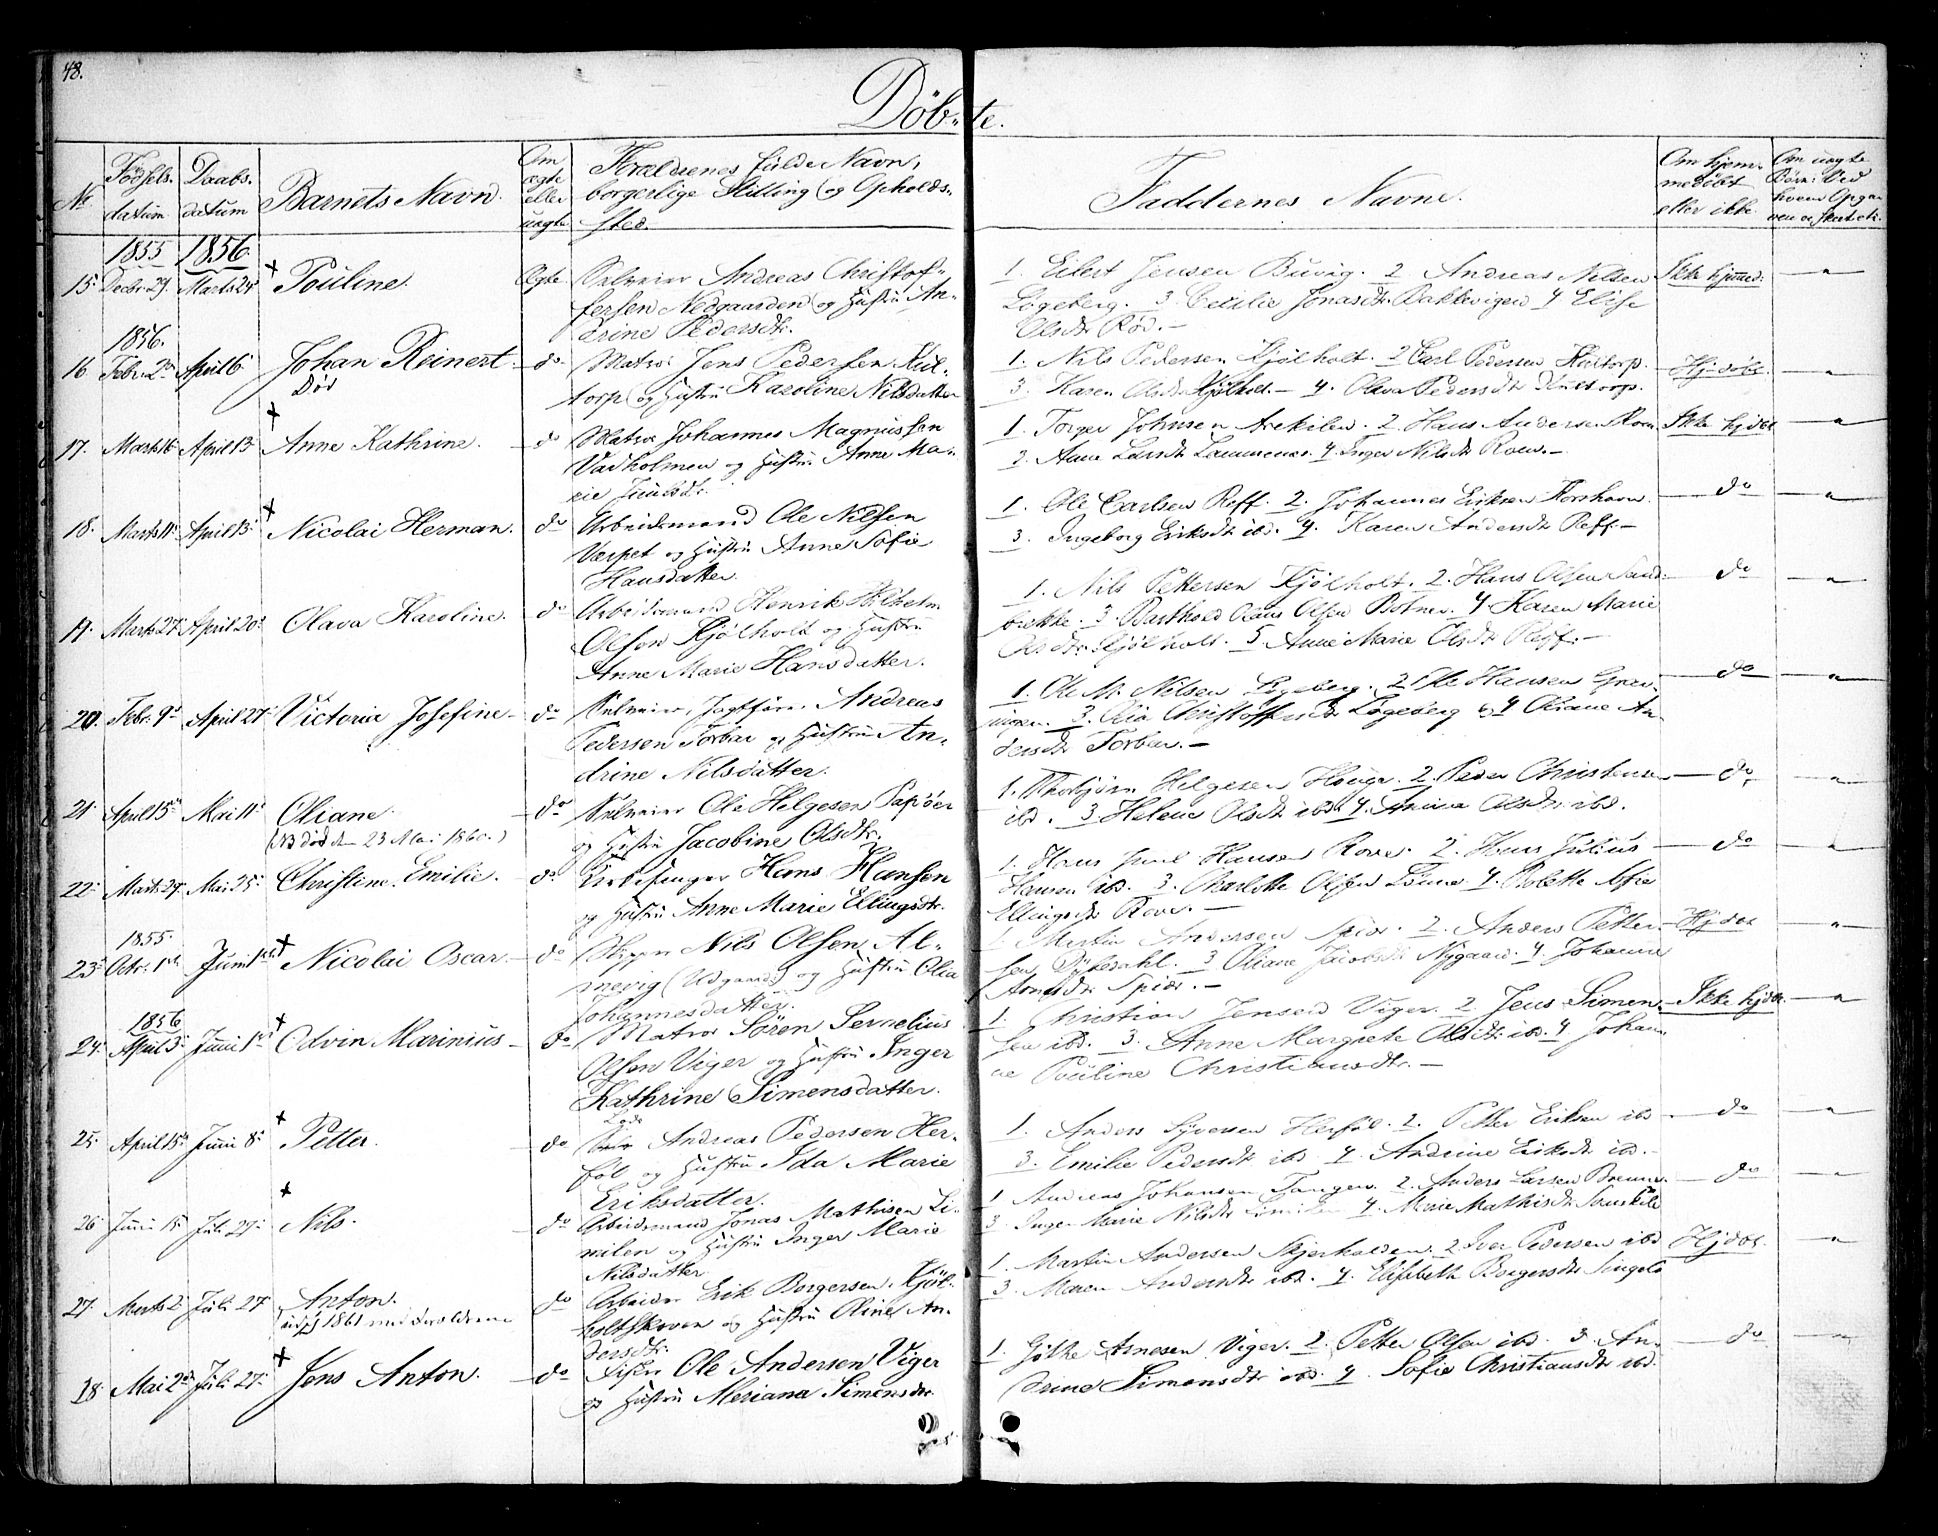 48.
Döb-te.
No
Födsels-
datum
Daabs-
datum
Barnets Navn.
Om
ægte
eller
uægte
Forældrenes fulde Navn,
borgerlige Stilling og Opholds-
sted.
Faddernes Navne.
Om hjem-
medöbt
eller ikke
Om uægte
Börn: Ved
hvem Opga-
ven er skeet etc.
1855 1856
15 Decbr. 29. Marts 24 Pouline. Ægte Selveier Andreas Christof-
fersen Nedgaarden og Hustru An-
drine Pedersdtr.
1. Eilert Jensen Buvig. 2 Andreas Nilsen
Lögeberg. 3 Cecilie Jonasdtr Bakkevigen 4 Elise
Olsdtr Röd.-
Ikke hjemmed:
1856.
16 Febr. 2den April 6 Johan Reinert. do Matros Jens Pedersen Kul-
Död
torp og Hustru Karoline Nilsdatter
1. Nils Pedersen Kjölholt. 2 Carl Pedersen Kultorp.
3. Karen Olsdtr Kjölholt.- 4. Olava Pedersdtr Kultorp.
Hj: döbt.
17. Marts 16 April 13 Anne Kathrine. do Matros Johannes Magnussen
Vadholmen og Hustru Anne Ma-
rie Juulsdtr.
1. Torger Johnsen Arekilen. 2. Hans Andersen Roven
3. Anne Larsdtr 4. Inger Nilsdtr Roven.-
Ikke hjdöbt
18. Marts 11. April 13. Nicolai Herman. do Arbeidsmand Ole Nilsen
Værpet og Hustru Anne Sofie
Hansdatter.
1. Ole Carlsen Reff. 2. Johannes Eriksen Korshavn.
3. Ingeborg Eriksdtr ibd. 4. Karen Andersdtr Reff.-
do
19. Marts 27. April 20. Olava Karoline. do Arbeidsmand Henrik Wilhelm
Olsen Kjölholt og Hustru
Anne Marie Hansdatter.
1. Nils Pettersen Kjölholt. 2. Hans Olsen Sand-
brekke. 3. Barthold Claus Olsen Botner. 4. Karen Marie
Olsdtr. Kjölholt. 5. Anne Marie Olsdtr Reff.-
do
20. Febr. 9. April 27. Victoria Josefine do Selveier, Jagtförer Andreas
Pedersen Torbar og Hustru An-
drine Nilsdatter.
1. Ole M. Nilsen Lögeberg. 2 Ole Hansen Græn-
ningen. 3. Olia Christoffersdtr Lögeberg og 4 Oliane An-
dersdtr Torbar.-
do
21. April 15de Mai 11. Oliane. do Selveier Ole Helgesen Papöer
(NB död den 23 Mai 1860.)
og Hustru Jacobine Olsdtr.
1. Thorbjörn Helgesen Hauge. 2. Peder Christensen
ibd. 3 Helene Olsdtr ibd 4. Anina Olsdtr ibd.
do
22. Marts 29. Mai 25. Christine Emilie. do Kirkesanger Hans Hansen
og Hustru Anne Marie Ellingsdtr.
1. Hans Juul Hansen Rove. 2. Hans Julius
Hansen ibd. 3. Charlotte Olsen 4. Bolette Sofie
Ellingsdtr Rove.-
do
1855.
23. Octr. 1ste Juni 1ste Nicolai Oscar do Skipper Nils Olsen Al-
mevig (Udgaard) og Hustru Olia
Johannesdatter.
1. Martin Andersen Spidr. 2. Anders Petter-
sen Dybedahl. 3 Oliane Jacobsdtr Nygaard. 4. Johanne
Arnesdtr Spidr.-
Hjdöbt
1856
24. April 3. Juni 1ste Odvin Marinius do Matros Sören Sernelius
Olsen Viger og Hustru Inger
Kathrine Simensdatter.
1. Christian Jensen Viger 2 Jens Simen-
sen ibd. 3. Anne Margrete Olsdtr ibd. 4 Johan-
ne Pouline Christiansdtr.-
Ikke hjdöbt
25. April 15de Juni 8. Petter. do Lods Andreas Pedersen Her-
föl og Hustru Ida Marie
Eriksdatter.
1. Anders Syversen Herföl. 2. Petter Eriksen ibd
3. Emilie Pedersdtr ibd 4. Andrine Eriksdtr ibd.-
do
26 Juni 15. Juli 27. Nils. do Arbeidsmand Jonas Mathisen Li-
milen og Hustru Inger Marie
Nilsdatter
1 Andreas Johansen Tangen. 2. Anders Larsen Brenne
3. Inger Marie Nilsdtr 4. Marie Mathisdtr
do
27. Marts 2 Juli 27 Anton. do Arbeider Erik Borgersen Kjöl-
udfl 1861 med Forældrene
holtskoven og Hustru Oline An-
dersdtr.
1. Martin Andersen Skjerhalden. 2 Iver Pedersen ibd
3. Maren Andersdtr ibd. 4. Elisabeth Borgersdtr
Hjdöbt.
28 Mai 2den Juli 27. Jens Anton. do Fisker Ole Andersen Viger
og Hustru Meriana Simensdtr.
1. Göthe Arnesen Viger. 2. Petter Olsen ibd. 3. An-
drine Simensdtr ibd. 4. Sofie Christiansdtr ibd.
do